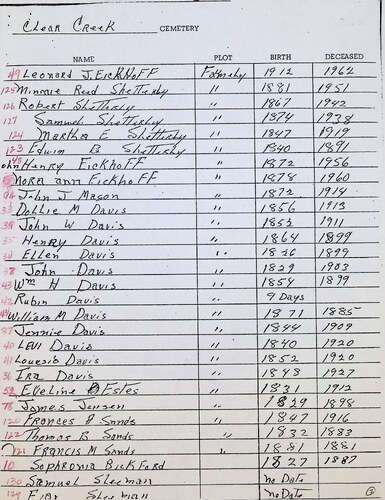 Clear Creek CEMETERY
NAME PLOT BIRTH DECEASED
49 Leonard J. Eickhoff 1912 1962
125 Minnie Reed Shetterly " 1881 1951
126 Robert Shetterly " 1867 1942
127 Samuel Shetterly " 1874 1938
124 Martha E Shetterly " 1847 1919
123 Edwin B Shetterly " 1840 1891
John Henry Eickhoff " 1872 1956
Nora Ann Eickhoff " 1878 1960
96 John J Mason " 1872 1914
33 Dollie M Davis " 1856 1913
38 John W Davis " 1852 1911
35 Henry Davis " 1864 1899
34 Ellen Davis " 1826 1899
37 John Davis " 1829 1903
43 Wm H Davis " 1854 1899
42 Rubin Davis " 9 Days
44 William M Davis " 1871 1885
39 Jennie Davis " 1844 1909
40 LEVI Davis " 1840 1920
41 Davis " 1852 1920
36 Ira Davis " 1848 1927
52 Eveline B Estes " 1831 1912
78 James Jensen " 1829 1898
120 Frances A Sands " 1847 1916
122 Thomas B Sands " 1832 1883
121 Francis M Sands " 1881 1881
10 Sophronia Bickford 1827 1887
130 Samuel Sleeman " no Date
129 Sleeman " no Date